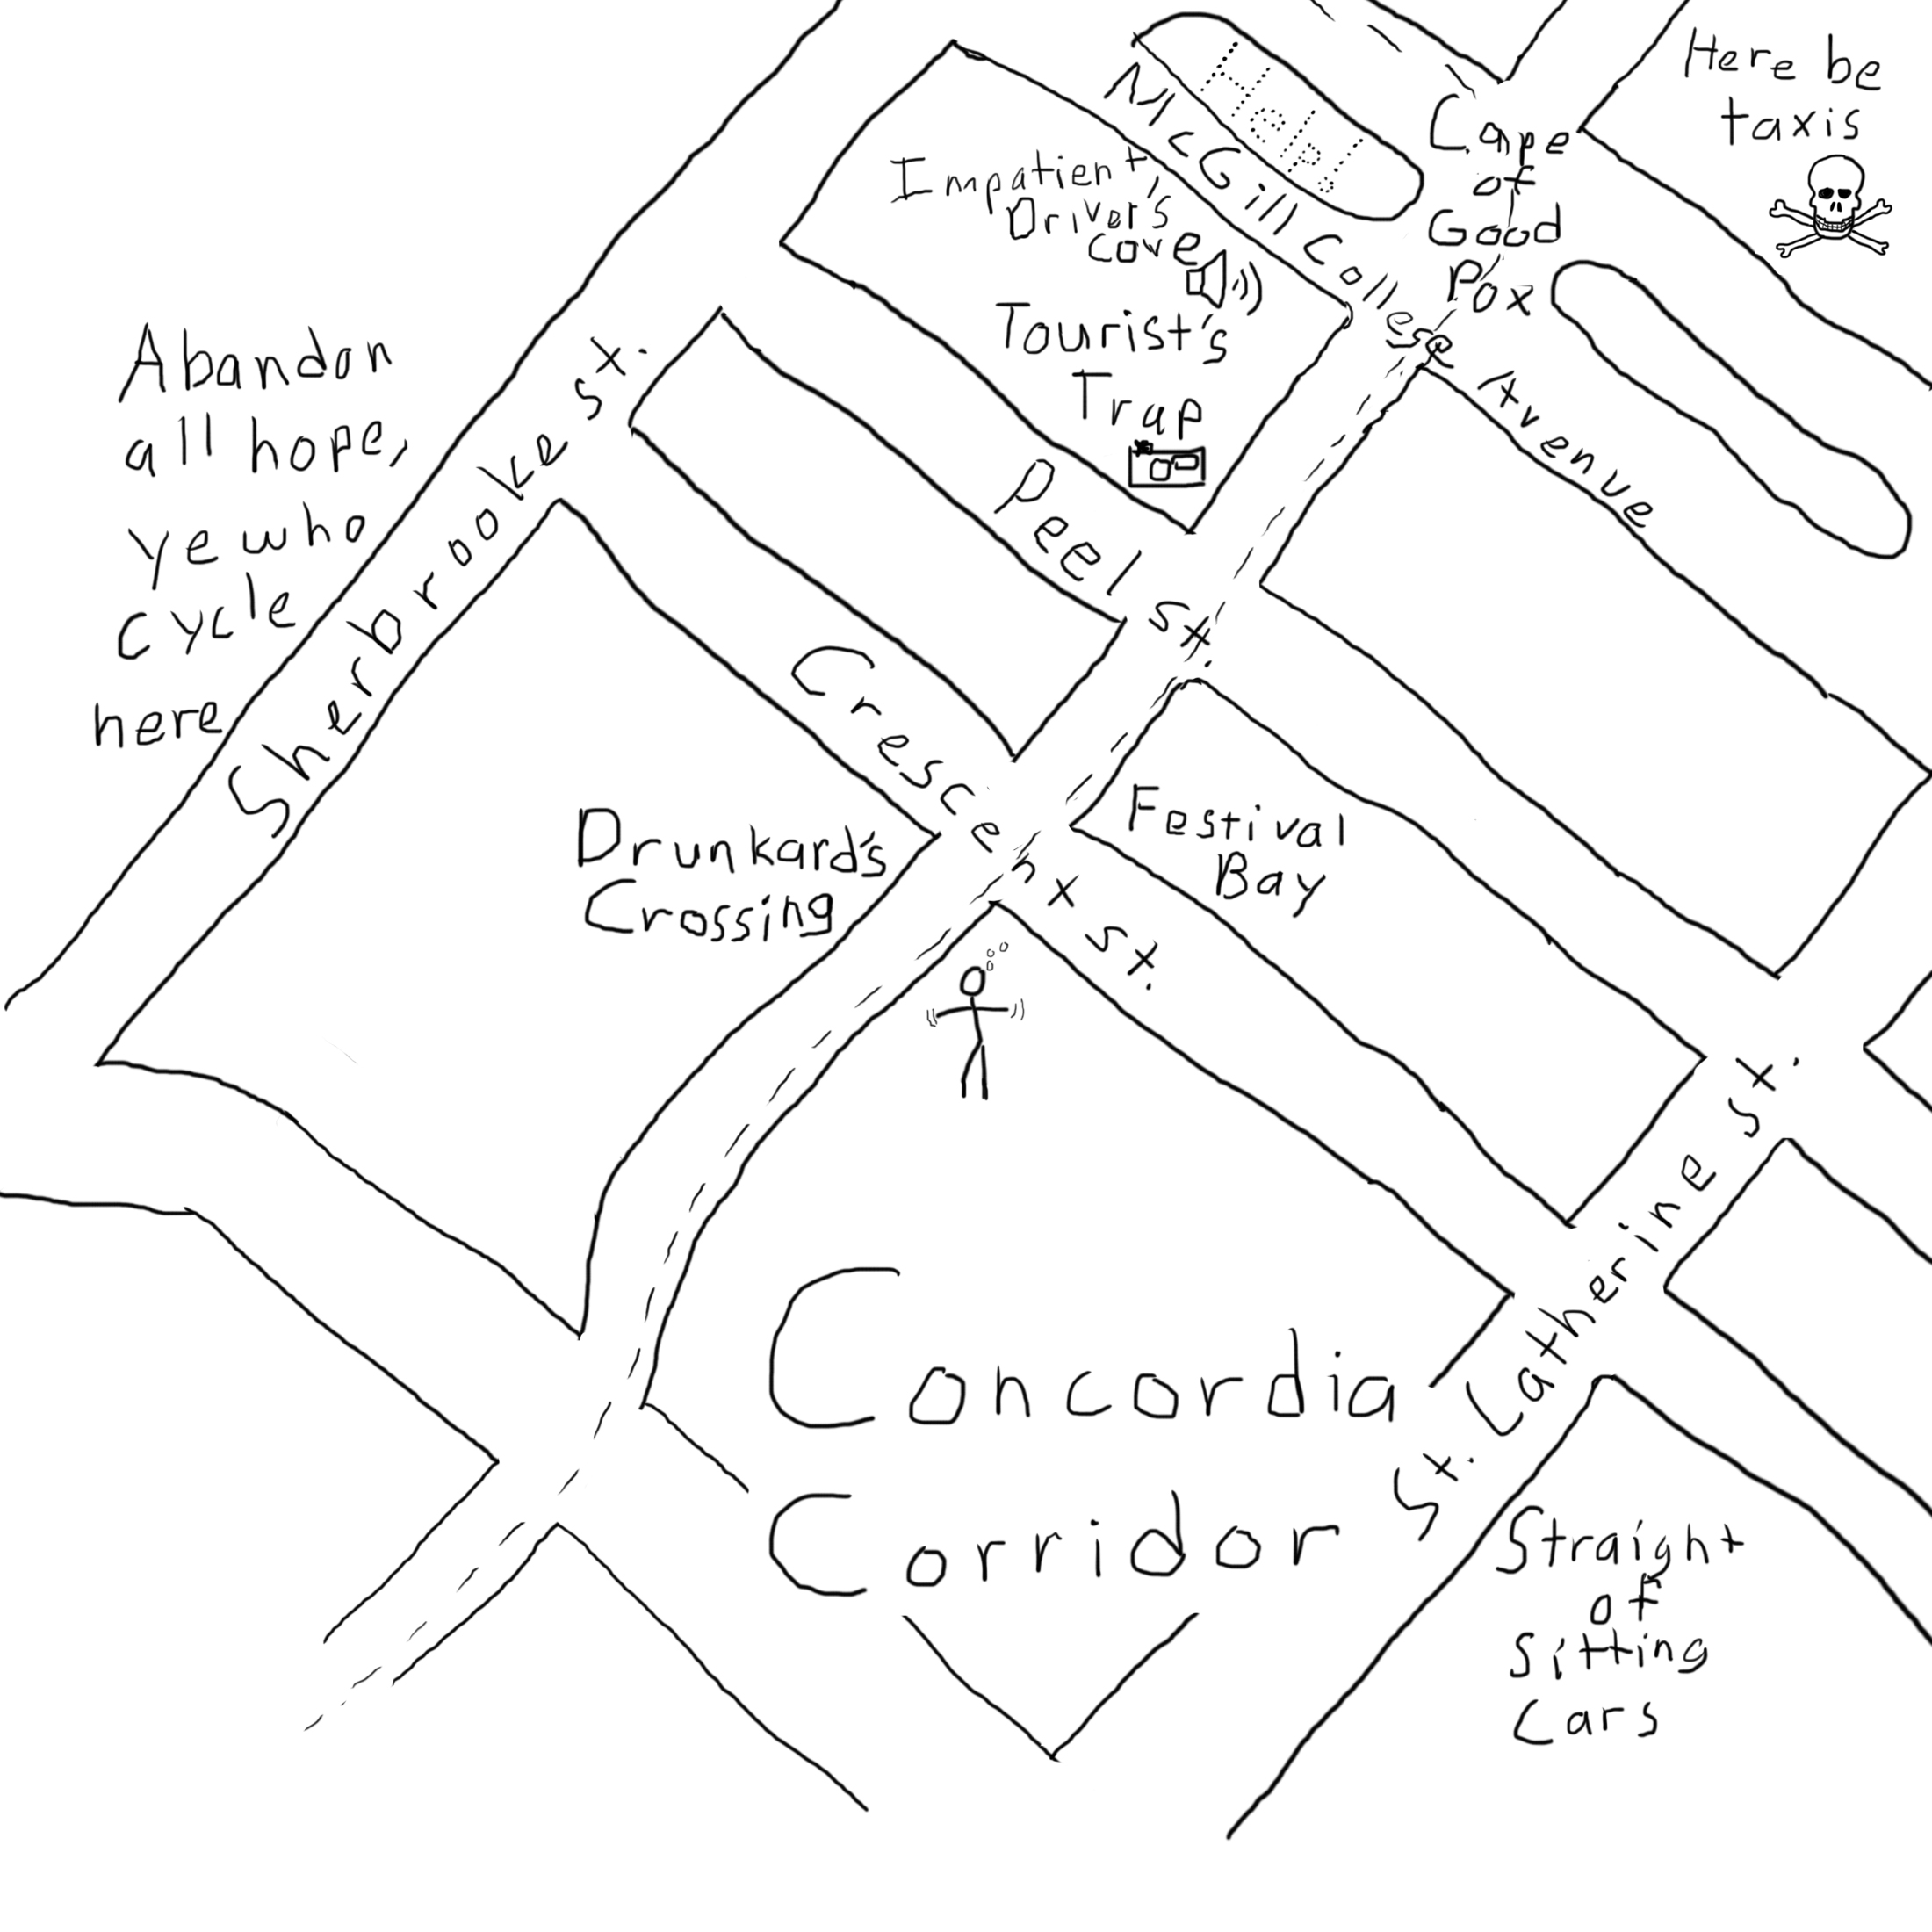 Here be
taxis
Help!
McGill College Avenue
Cape
of
Good
Pox
Impatient
Driver's
Cove
Tourist's
Trap
Abandon
all hope,
ye who
cycle
here
Sherbrooke st.
Peel st.
Crescent st.
Drunkard's
Crossing
Festival
Bay
St. Catherine st.
Concordia
Corridor
Straight
of
Sitting
Cars